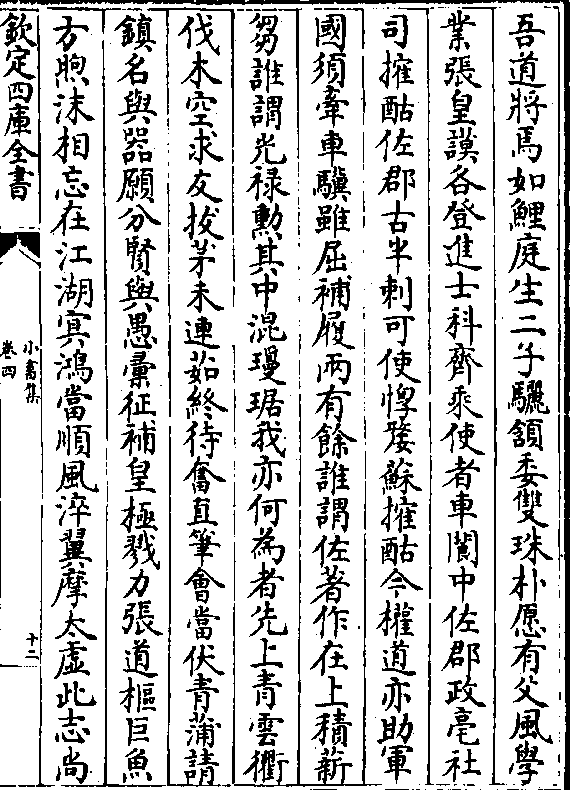 吾道將焉如鯉庭生二子驪頷委雙珠朴愿有父風學
業張皇謨各登進士科齊乘使者車閬中佐郡政亳社
司㩁酤佐郡古半刺可使惸嫠蘇㩁酤今權道亦助軍
國須牽車驥雖屈補履兩有餘誰謂佐著作在上積薪
芻誰謂光禄勲其中混璗琚我亦何為者先上青雲衢
伐木空求友拔茅未連茹終待奮直筆會當伏青蒲請
鎮名與器願分賢與愚彚征補皇極戮力張道樞巨魚
方煦沫相忘在江湖㝠鴻當順風淬翼摩太虛此志尚
欽定四庫全書
小畜集
卷四
十二